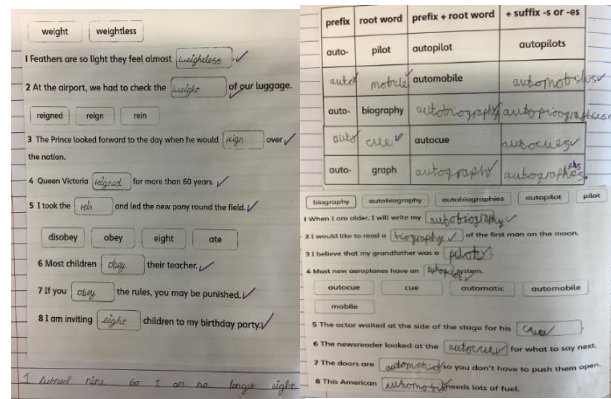 weight weightless
1 Feathers are so light they feel almost weightless.
2 At the airport, we had to check the weight of our luggage.
reigned reign rein
3 The Prince looked forward to the day when he would reign over
the nation.
4 Queen Victoria reigned for more than 60 years.
5 I took the rein and led the new pony round the field.
disobey obey eight ate
6 Most children obey their teacher.
7 If you obey the rules, you may be punished.
8 I am inviting eight children to my birthday party.
I turned nine so I am no longer eight
prefix root word prefix + root word + suffix -s or -es
auto- pilot autopilot autopilots
auto mobile automobile automobiles
auto- biography autobiography autobiographies
auto cue autocue autocues
auto- graph autograph autographes.
biography autobiography autobiographies autopilot pilot
1 When I am older, I will write my autobiography
2 I would like to read a biography of the first man on the moon.
3 I believe that my grandfather was a pilot
4 Most new aeroplanes have an autopilot system.
autocue cue automatic automobile
mobile
5 The actor waited at the side of the stage for his cue.
6 The newsreader looked at the autocue for what to say next.
7 The doors are automatic so you don't have to push them open.
8 This American automobile needs lots of fuel.